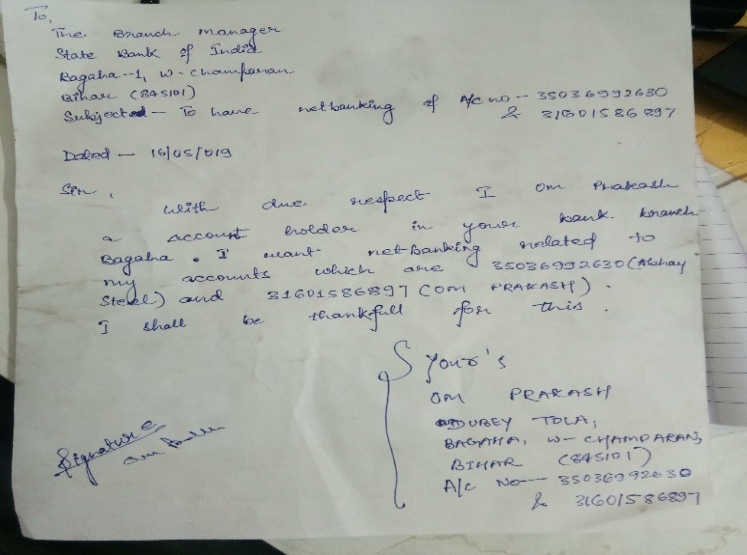 To,
The Branch Manager
State Bank of India
Bagaha-1, W-Champaran
Bihar (845101)
Subjected - To have netbanking of A/c no - 35036992630
& 31601586897
Dated - 16/05/019
Sir,
with due respect I Om Prakash
a account holder in your bank branch
Bagaha. I want netbanking related to
my accounts which are 35036992630 (Abhay
Steel) and 31601586897 (OM PRAKASH).
I shall be thankfull for this.
Your's
OM PRAKASH
DUBEY TOLA,
BAGAHA, W-CHAMPARAN,
BIHAR (845101)
A/c No- 35036992630
& 31601586897
Signature